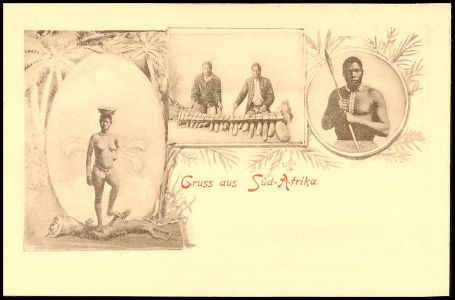 Gruss aus Süd-Afrika.